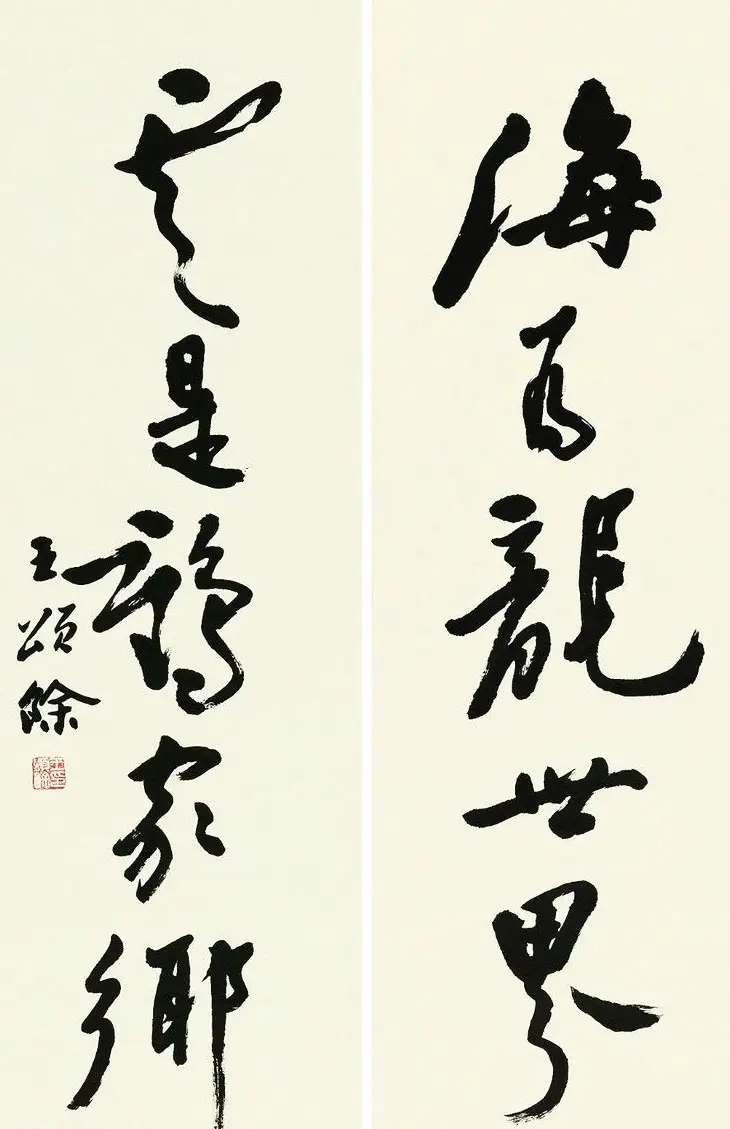 海為龍世界
雲是鶴家鄉
王頌餘